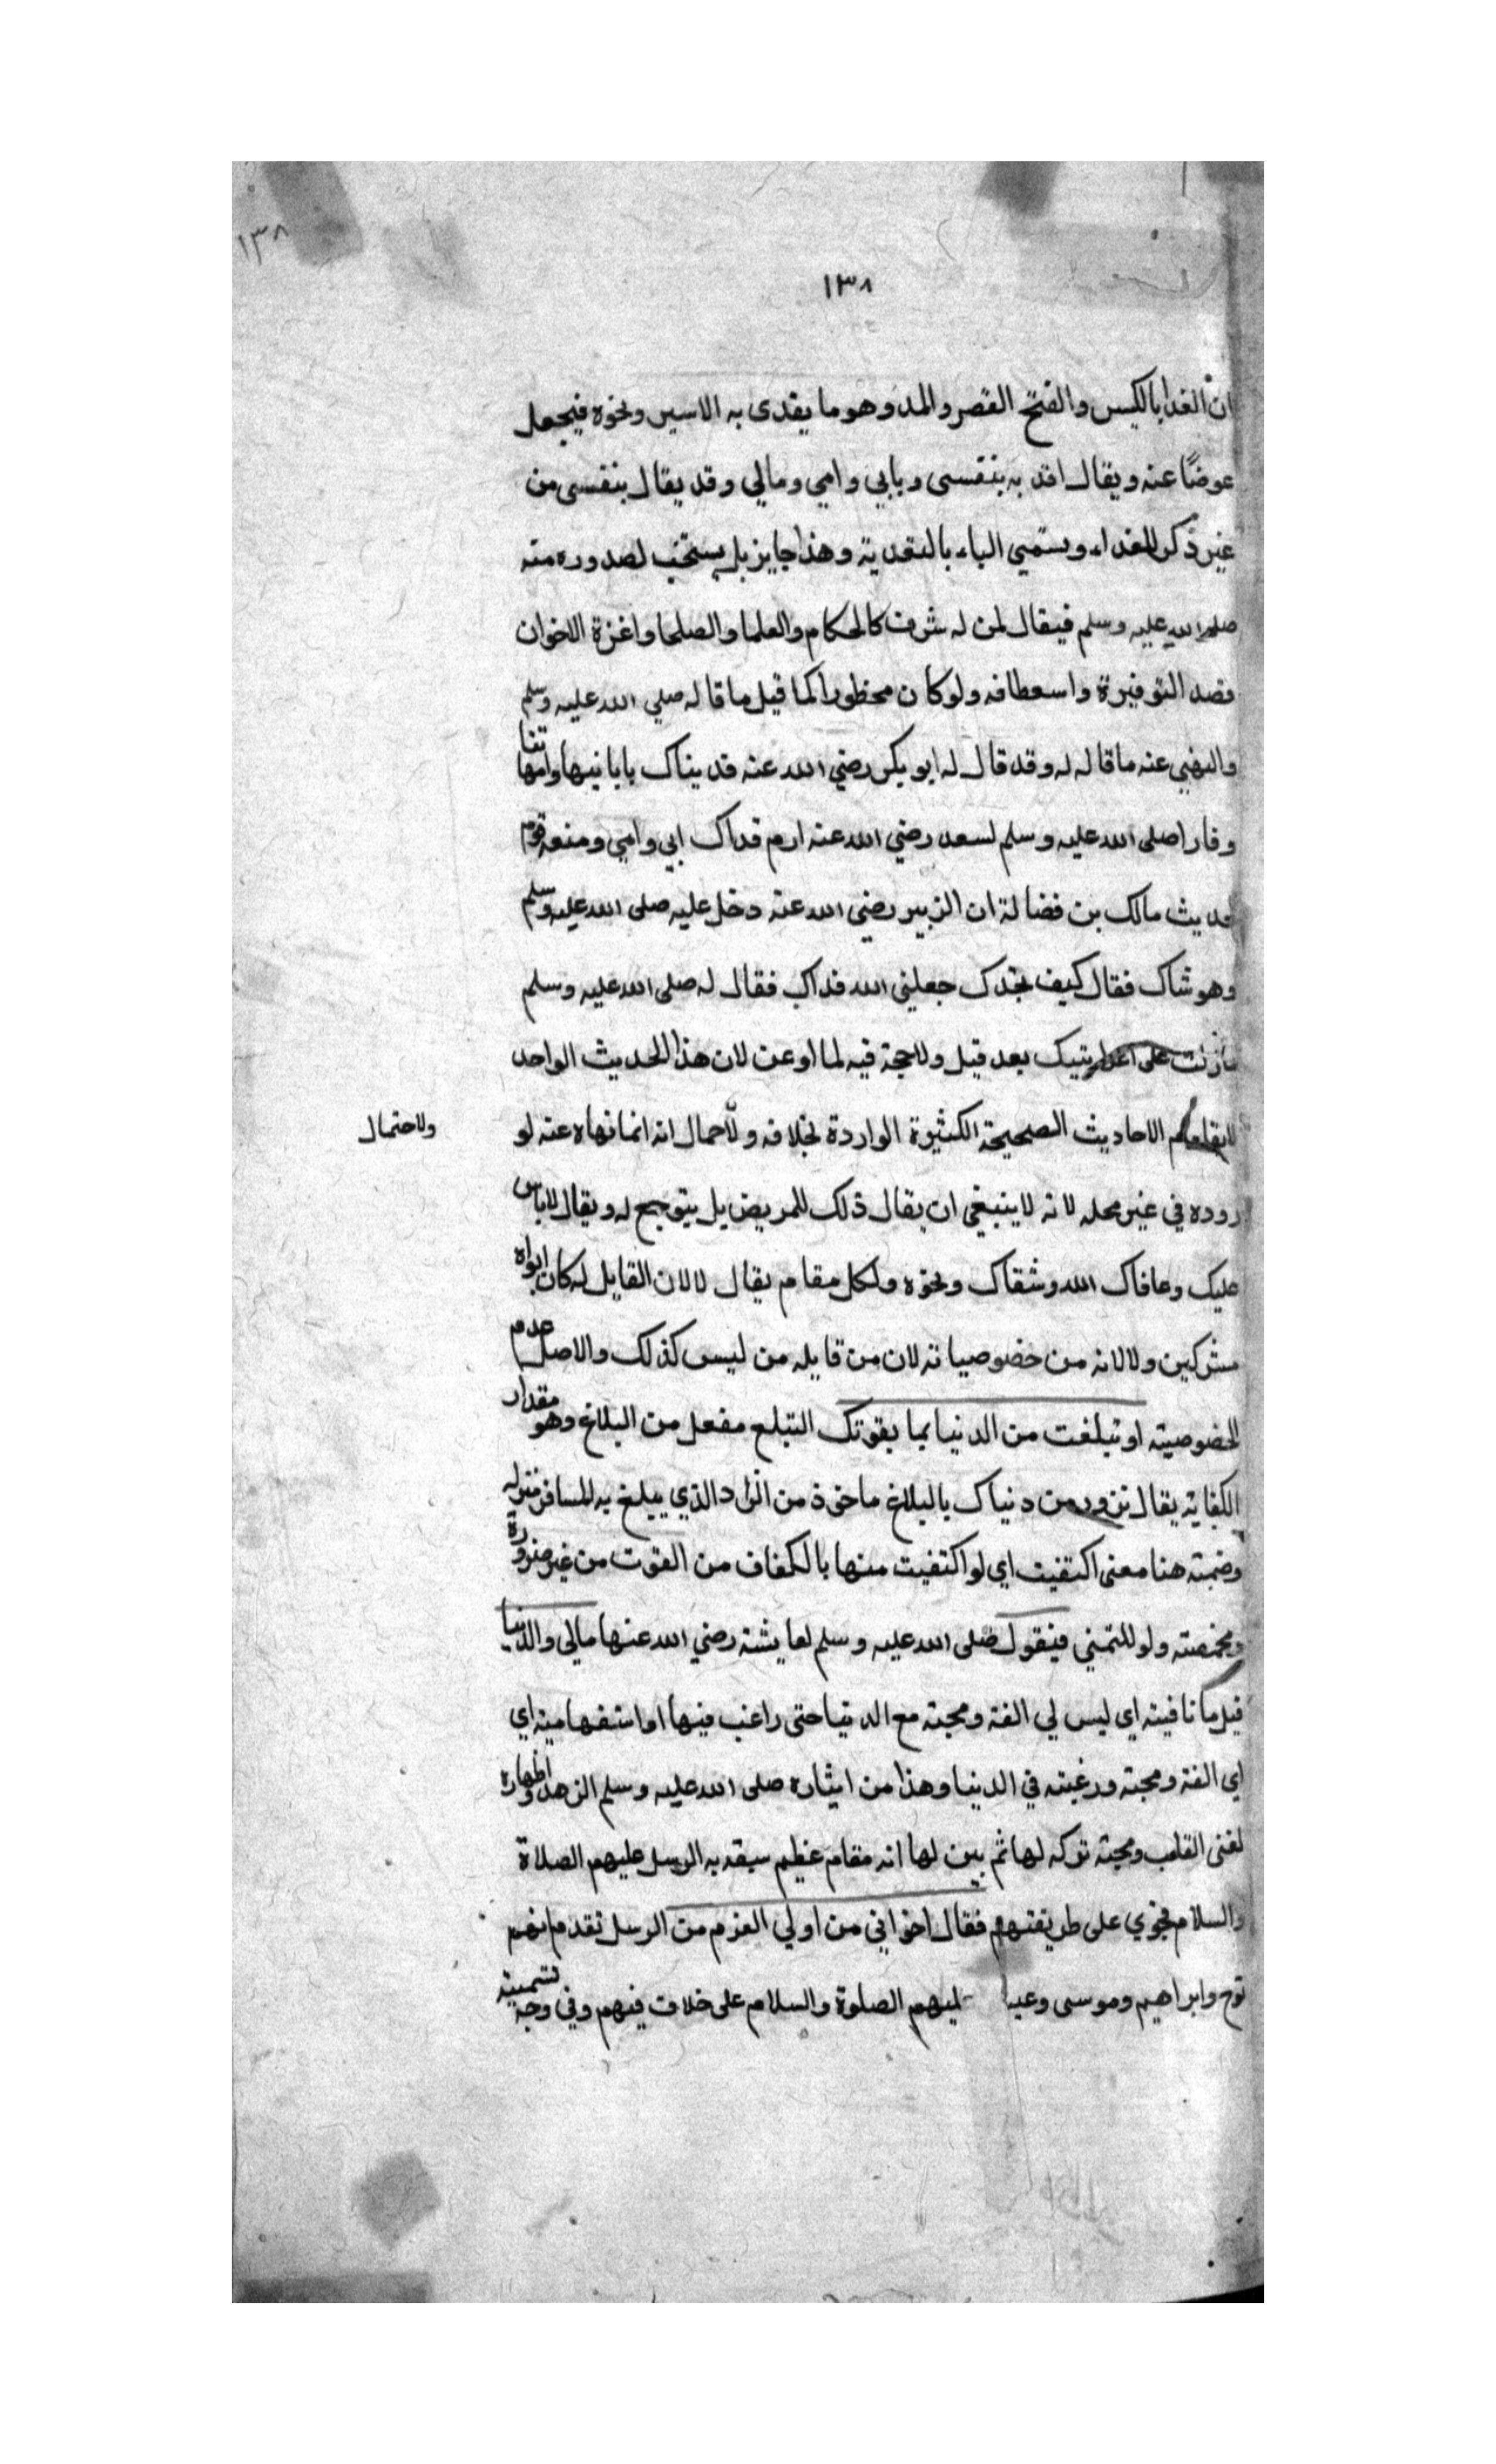 ١٣٨
١٣٨
ان الفدا بالكسر والفتح القصر والمد وهو ما يفدى به الاسير ونحوه فيجعل
عوضًا عنه ويقال افد به بنفسى وبابي وامي ومالي وقد يقال بنفسى من
غير ذكر للفداء ويستمي الباء بالتفدية وهذا جايز بل يستحب لصدوره منه
صلى الله عليه وسلم فيقال لمن له شرف كالحكام والعلما والصلحا واعزة الاخوان
قصد التوفيرة واسعطافه ولو كان محظورا كما قيل ما قاله صلي الله عليه وسلم
والنهي عنه ما قاله له وقد قال له ابو بكر رضي الله عنه فديناك بابانيها وامهاتنا
وقارا صلى الله عليه وسلم لسعد رضي الله عنه ارم فداك ابي وامي ومنعه قوم
لحديث مالك بن فضالة ان الزبير رضي الله عنه دخل عليه صلى الله عليه وسلم
وهو شاك فقال كيف نجدك جعلني الله فداك فقال له صلى الله عليه وسلم
مازلت على اعرابيتيك بعد قيل ولا حجة فيه لما اوعن لان هذا الحديث الواحد
لا يقاوم الاحاديث الصحيحة الكثيرة الواردة بخلافه ولاحمال انه انما نهاه عنه لو
ولاحتمال
روده في غير محله لانه لا ينبغي ان يقال ذلك للمريض بل يتوجع له ويقال لاباس
عليك وعافاك الله وشفاك ونحوه ولكل مقام يقال لا لان القايل له كان ابواه
مشركين ولا لانه من خصوصياته لان من قايله من ليس كذلك والاصل عدم
الخصوصية او تبلغت من الدنيا بما يقوتك التبلع مفعل من البلاغ وهو مقدار
الكفاية يقال تزود من دنياك بالبلاغ ماخوذ من الزاد الذي يبلغ به للمسافر منزله
وضمنه هنا معنى اكتفيت اي لو اكتفيت منها بالكفاف من القوت من غير ضرورة
ومخمصة ولو للتمني فيقول صلى الله عليه وسلم لعايشة رضي الله عنها مالى والدنيا
قيل ما نافيته اي ليس لي الفة ومحبة مع الدنيا حتى راغب فيها او استفهامية اي
اي الفة ومحبة ورغبته في الدنيا وهذا من ايثاره صلى الله عليه وسلم الزهد واظهاره
لغنى القلب ومحبة تركه لها ثم بين لها انه مقام عظيم سبقه به الرسل عليهم الصلاة
والسلام فجري على طريقتهم فقال اخواني من اولي العزم من الرسل تقدم انهم
نوح وابراهيم وموسى وعيـ ليهم الصلوة والسلام على خلاف فيهم وفي وجه تسميته